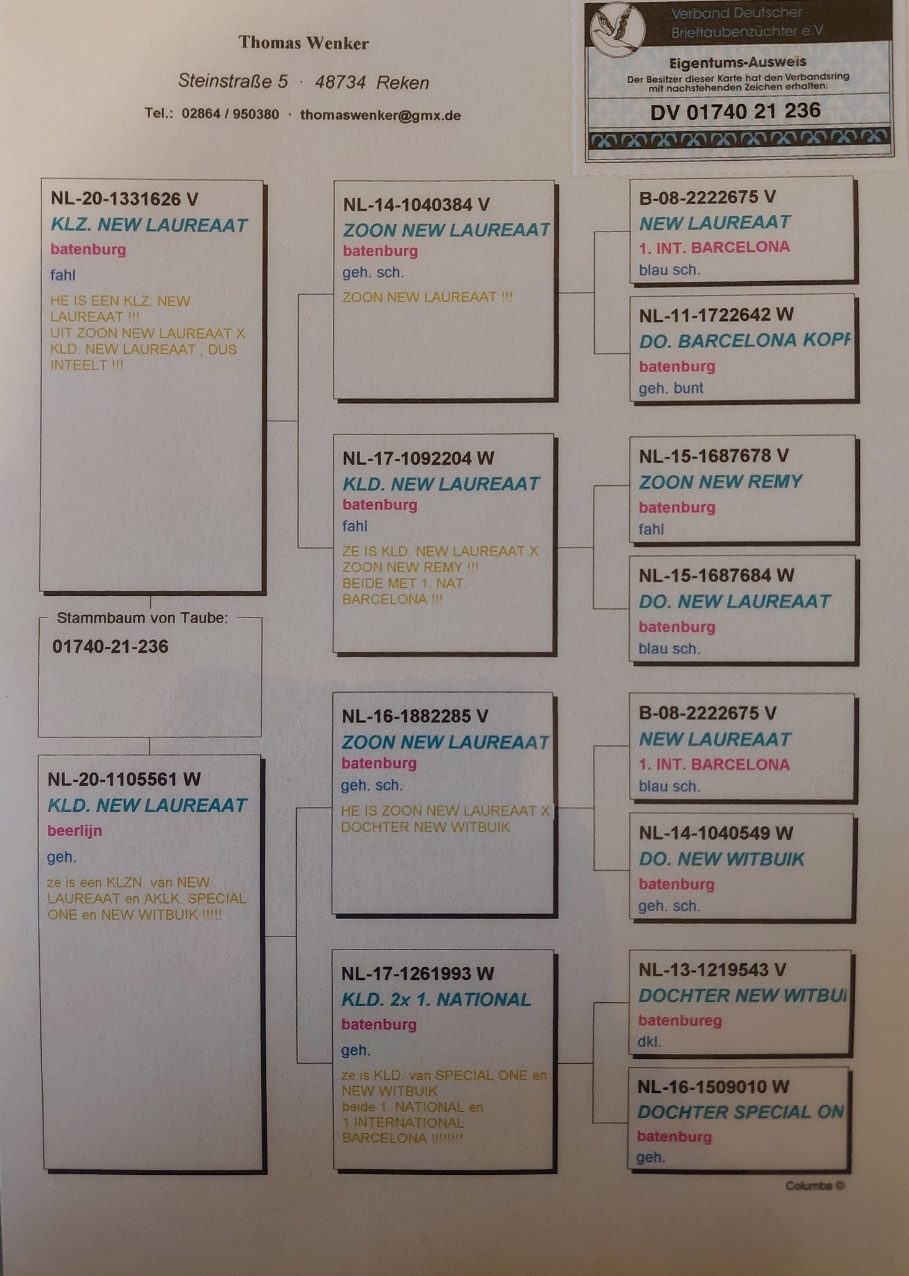 Thomas Wenker
Steinstraße 5 · 48734 Reken
Tel.: 02864 / 950380 · thomaswenker@gmx.de
Verband Deutscher
Brieftaubenzüchter e.V.
Eigentums-Ausweis
Der Besitzer dieser Karte hat den Verbandsring
mit nachstehenden Zeichen erhalten:
DV 01740 21 236
NL-20-1331626 V
KLZ. NEW LAUREAAT
batenburg
fahl
HE IS EEN KLZ. NEW
LAUREAAT !!!
UIT ZOON NEW LAUREAAT X
KLD. NEW LAUREAAT , DUS
INTEELT !!!
Stammbaum von Taube:
01740-21-236
NL-20-1105561 W
KLD. NEW LAUREAAT
beerlijn
geh.
ze is een KLZN. van NEW
LAUREAAT en AKLK. SPECIAL
ONE en NEW WITBUIK !!!!!
NL-14-1040384 V
ZOON NEW LAUREAAT
batenburg
geh. sch.
ZOON NEW LAUREAAT !!!
NL-17-1092204 W
KLD. NEW LAUREAAT
batenburg
fahl
ZE IS KLD. NEW LAUREAAT X
ZOON NEW REMY !!!
BEIDE MET 1. NAT.
BARCELONA !!!
NL-16-1882285 V
ZOON NEW LAUREAAT
batenburg
geh. sch.
HE IS ZOON NEW LAUREAAT X
DOCHTER NEW WITBUIK
NL-17-1261993 W
KLD. 2x 1. NATIONAL
batenburg
geh.
ze is KLD. van SPECIAL ONE en
NEW WITBUIK
beide 1. NATIONAL en
1.INTERNATIONAL
BARCELONA !!!!!!!!
B-08-2222675 V
NEW LAUREAAT
1. INT. BARCELONA
blau sch.
NL-11-1722642 W
DO. BARCELONA KOPP
batenburg
geh. bunt
NL-15-1687678 V
ZOON NEW REMY
batenburg
fahl
NL-15-1687684 W
DO. NEW LAUREAAT
batenburg
blau sch.
B-08-2222675 V
NEW LAUREAAT
1. INT. BARCELONA
blau sch.
NL-14-1040549 W
DO. NEW WITBUIK
batenburg
geh. sch.
NL-13-1219543 V
DOCHTER NEW WITBUI
batenbureg
dkl.
NL-16-1509010 W
DOCHTER SPECIAL ON
batenburg
geh.
Columba ©